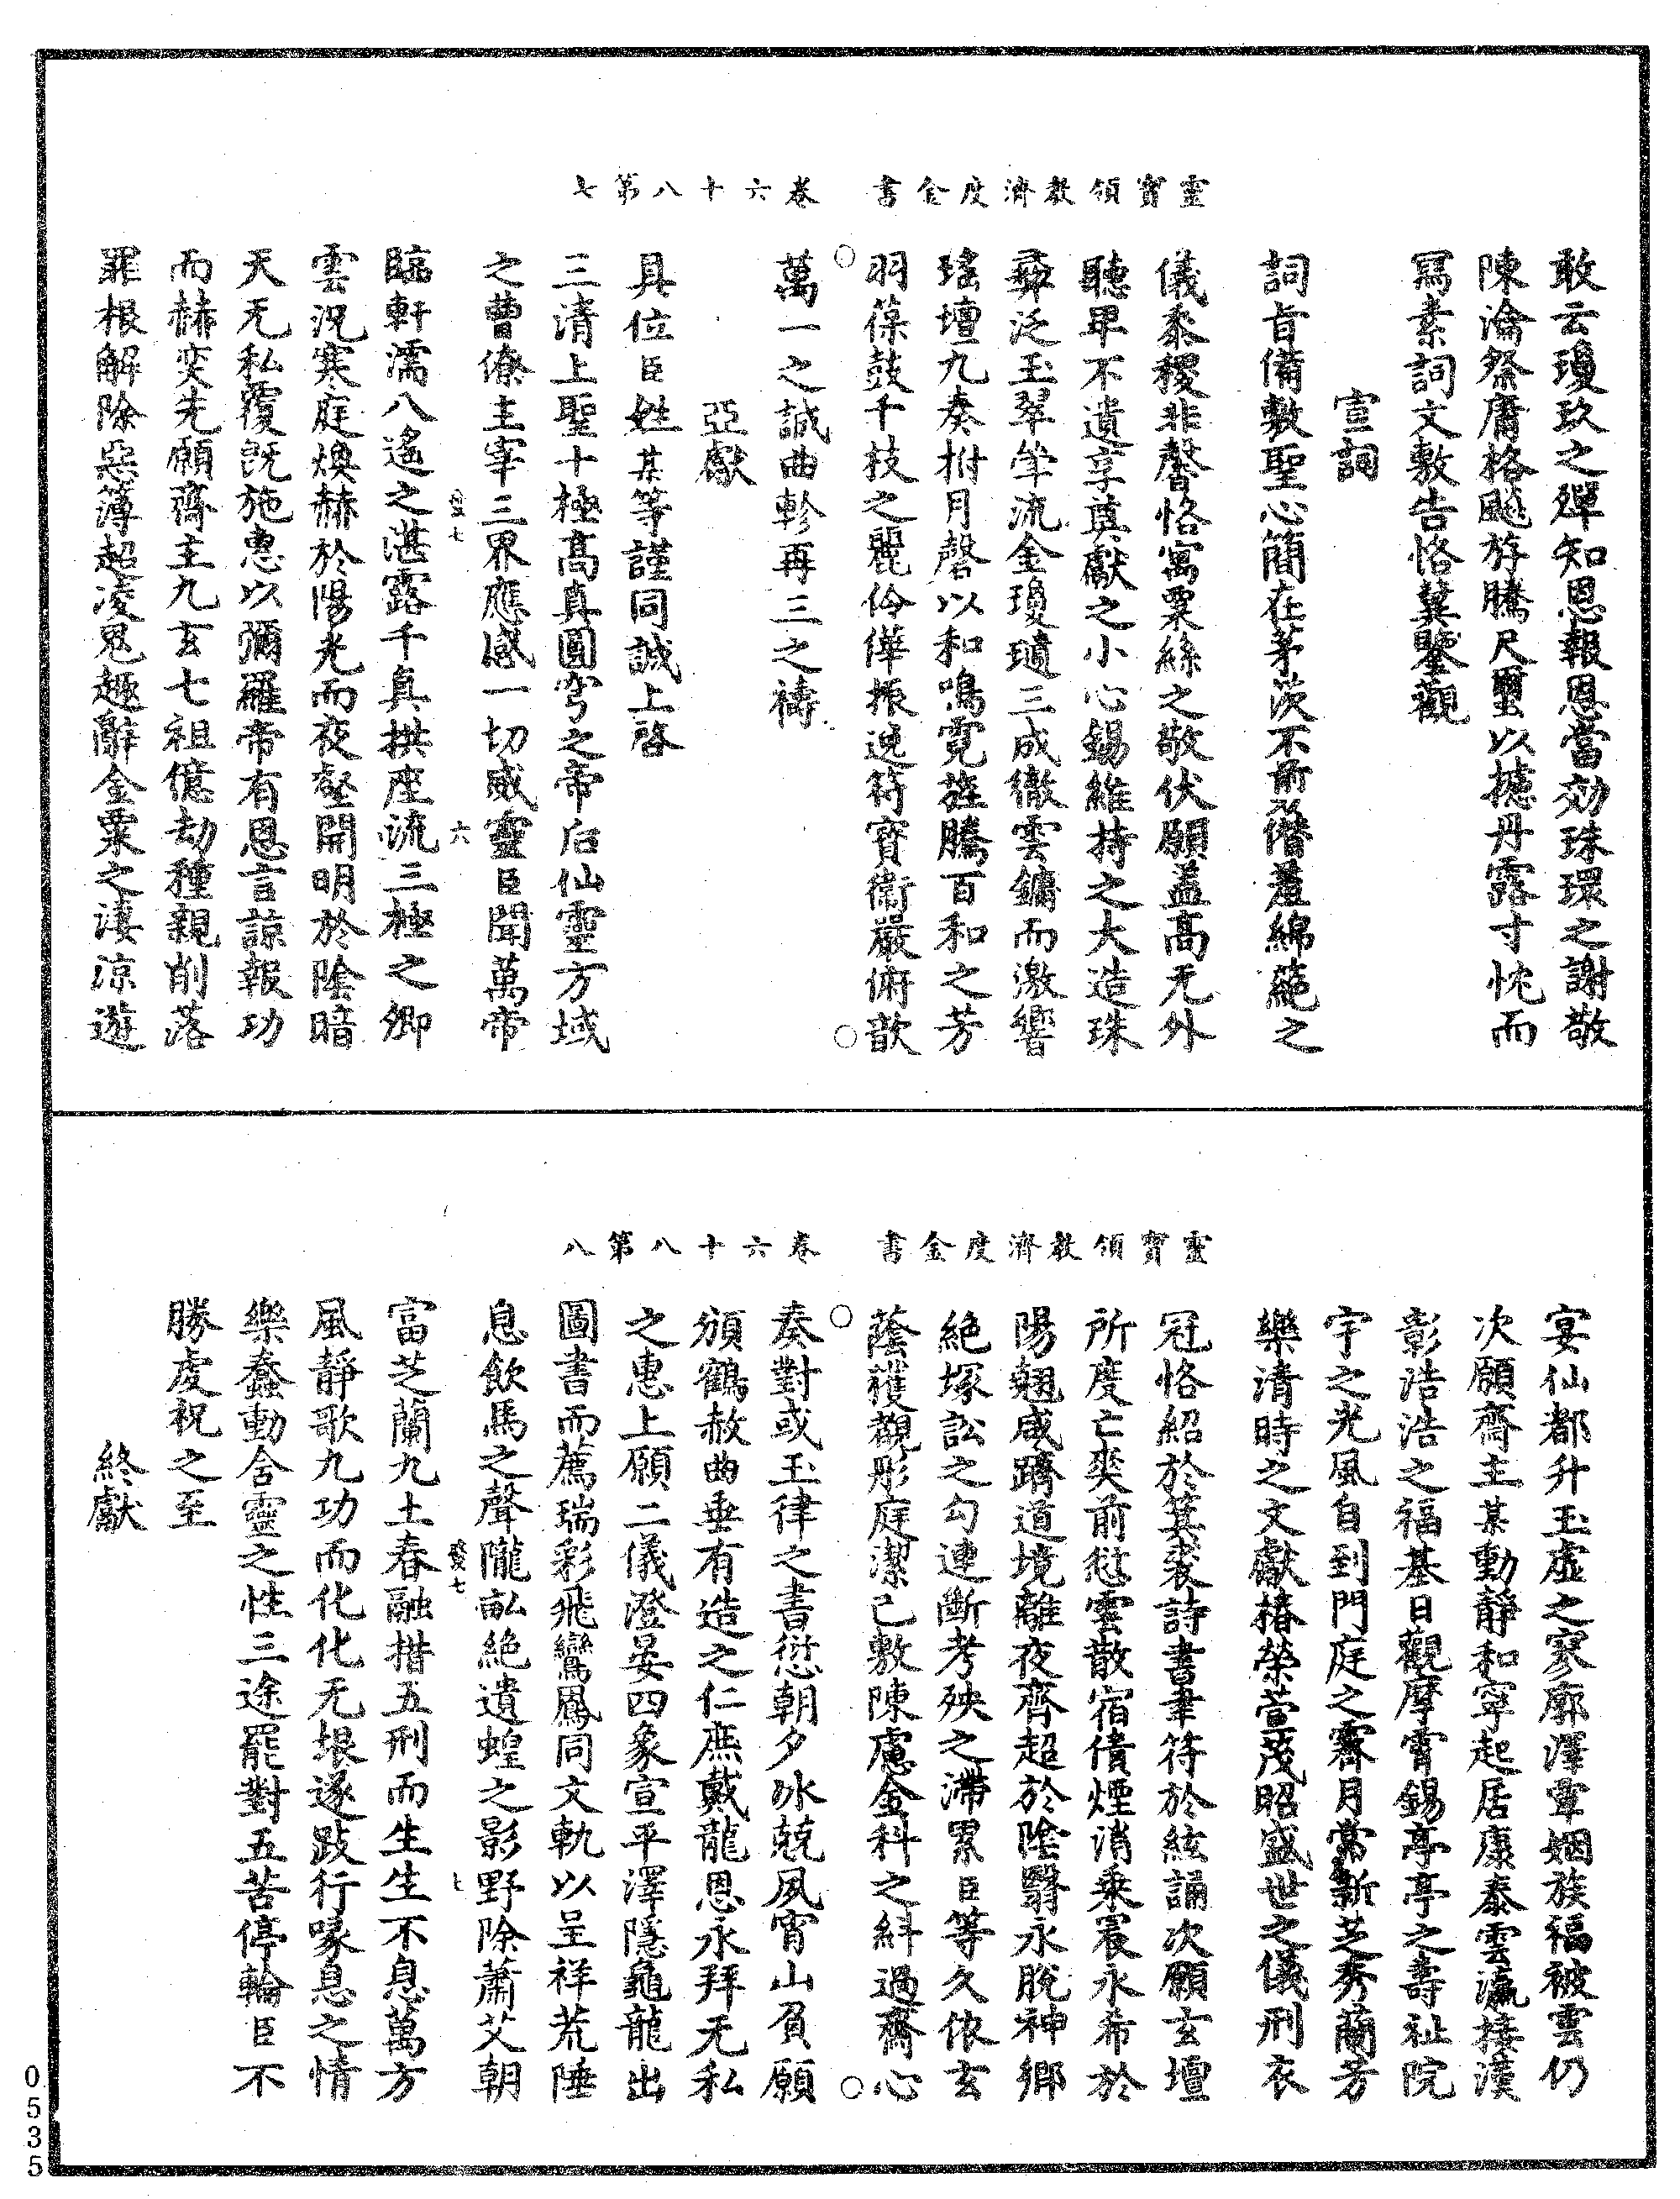 敢云瓊玖之殫知恩報恩當効珠環之謝敬
陳瀹祭庸格飈斿騰尺璽以攄丹露寸忱而
冩素詞文敷告恪冀鑒觀
宣詞
詞旨備敷聖心簡在茅茨不翦羞綿蕝之
儀黍稷非馨恪寓粟絲之敬伏願蓋高无外
聽卑不遺享奠獻之小心錫維持之大造珠
彛泛玉翠斝流金瓊璲三成徹雲鏞而激響
瑤壇九奏拊月磬以和鳴霓旌騰百和之芳
羽葆鼓千枝之麗伶僊振逸符寳衛嚴俯歆
靈寳領教濟度金書 卷六十八第七
萬一之誠曲軫再三之禱
亞獻
具位臣姓某等謹同誠上啓
三清上聖十極高真圓穹之帝后仙靈方域
之曹僚主宰三界應感一切威靈臣聞萬帝
六
臨軒濡八遙之湛露千真拱座流三極之卿
雲況寒庭煥赫於陽光而夜壑開明於陰暗
天无私覆旣施惠以彌羅帝有恩言諒報功
而赫奕先願齋主九玄七祖億劫種親削落
罪根解除惡簿超凌鬼趣辭金粟之淒涼遊
宴仙都升玉虛之寥廓澤覃姻族福被雲仍
次願齋主某動靜和寧起居康泰雲瀛接漢
彰浩浩之福基日觀摩霄錫亭亭之壽祉院
宇之光風自到門庭之霽月常新芝秀蘭芳
樂清時之文獻椿榮萱茂昭盛世之儀刑衣
冠恪紹於箕裘詩書聿符於絃誦次願玄壇
所度亡爽前愆雲散宿債煙消乘晨永希於
陽翹咸躋道境離夜齊超於陰翳永脫神鄉
絕塚訟之勾連斷考殃之滯累臣等久依玄
蔭獲觀彤庭潔己敷陳慮金科之糾過齋心
靈寳領教濟度金書 卷六十八第八
奏對或玉律之書愆朝夕冰兢夙宵山負願
頒鶴赦曲垂有造之仁庶戴龍恩永拜无私
之惠上願二儀澄晏四象宣平澤隱龜龍出
圖書而薦瑞彩飛鸞鳳同文軌以呈祥荒陲
息飲馬之聲隴畝絕遺蝗之影野除蕭艾朝
七
富芝蘭九土春融措五刑而生生不息萬方
風靜歌九功而化化无垠遂跂行喙息之情
樂蠢動含靈之性三途罷對五苦停輪臣不
勝虔祝之至
終獻
0535